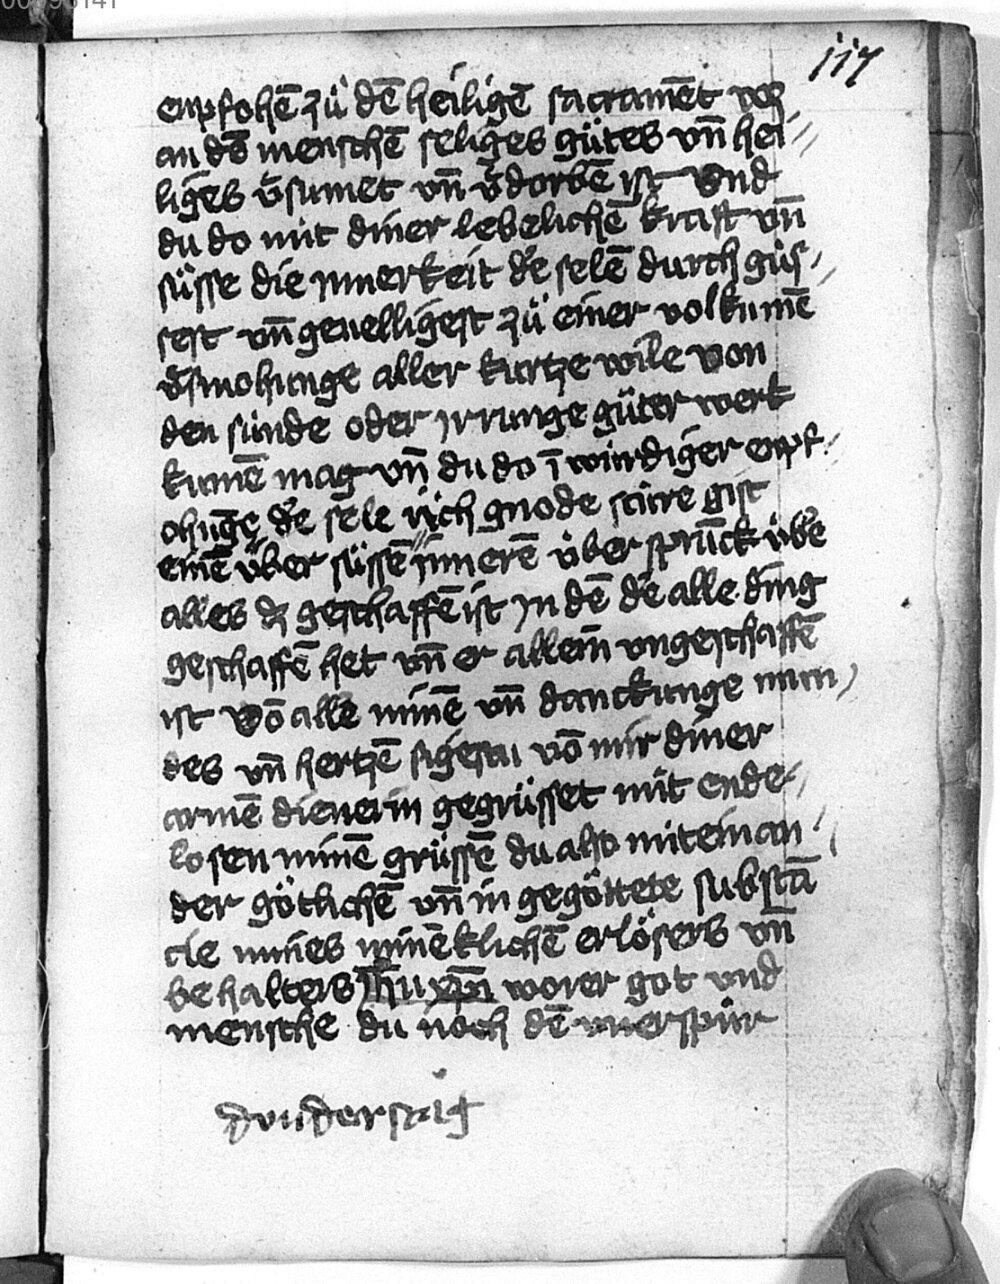 117
enpfohē zů dē heiligē sacramēt vor
an dē menschē seliges gůtes vn̄ hei
liges v̓sumet vn̄ v̓dorbē ist vnd
du do mit diner lebelichē kraft vn̄
süsse die jnnerkeit d̓e selē durch güs
sest vn̄ geuelligest zů einer volkumē
v̓smohunge aller kurtze wile von
den sünde oder jrrunge gůter werk
kumē mag vn̄ du do ī wirdiger enpf
ohūge d̓e sele rich gnode sture gist
einē über süssē jnnerē über spruck übe
alles dz geschaffē ist jn dē d̓e alle ding
geschaffē het vn̄ er allein vngeschaffē
ist vō alle minē vn̄ danckunge mun
des vn̄ hertzē sigestu vō mir diner
armē dienerin gegrüsset mit ende
losen minē grüssē du also miteinan
der götlichē vn̄ in gegöttete substā
cie mines minēklichē erlösers vn̄
behalters jhu xp̄i worer got vnd
mensche du noch dē
dunderstag